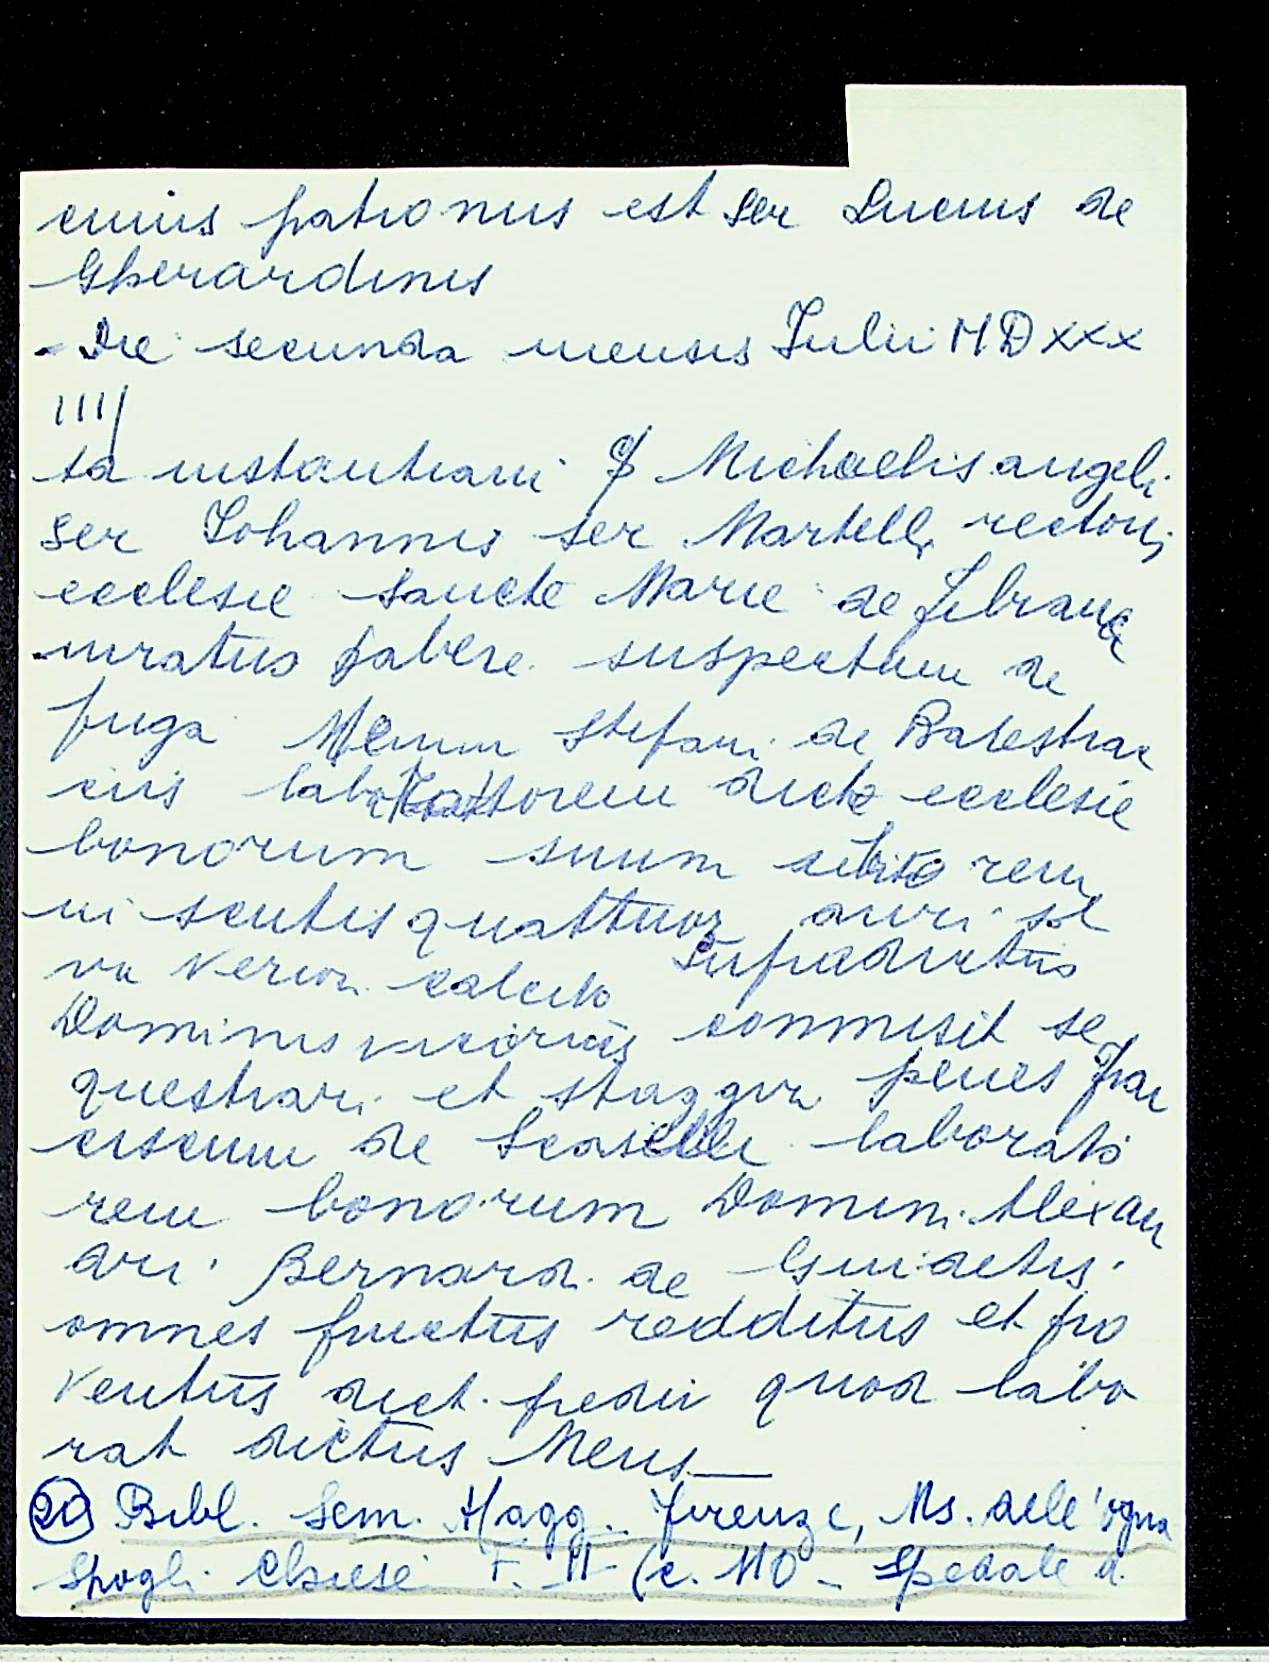 cuius patronus est ser Lucus de
Gherardinis
- Die secunda mensis Iulii MDXXX
IIII
ta instantiam Michaelis angeli
ser Iohannis ser Martelli rectoris
ecclesie sancte Marie de
iuratus habere suspectum de
fuga Meum Stefani de
ciis laboratorem dicte ecclesie
bonorum suum debito rem
ni scutis quattuor auri sol
Supradictus
Dominus vicarius commisit se
questrari et staggiri penes Fran
ciscum de laborato
rem bonorum Domini Alexan
dri Bernardi de Guidetis
omnes fructus redditus et pro
ventus dict. predii quod labo
rat dictus Meus
20 Bibl. Sem. Magg. Firenze, Ms. dell'ogna
Spogli Chiese F. II (c. 110 - Spedale d.